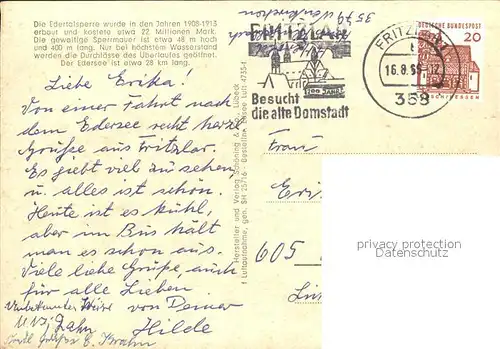 Die Edertalsperre wurde in den Jahren 1908-1913
erbaut und kostete etwa 22 Millionen Mark.
Die gewaltige Sperrmauer ist etwa 48 m hoch
und 400 m lang. Nur bei höchstem Wasserstand
werden die Durchlässe des Überlaufes geöffnet.
Der Edersee ist etwa 28 km lang.
Liebe Erika!
Von einer Fahrt nach
dem Edersee recht herz.
Grüße aus Fritzlar.
Es giebt viel zu sehen
u. alles ist schön.
Heute ist es kühl,
aber im Bus hält
man es schon aus.
Viele liebe Grüße, auch
für alle Lieben
von Deiner
Hilde
Unbekannter Weise
Hersteller und Verlag Schöning & Co., Lübeck
† Luftaufnahme, gen. SH 25716 - Bestellnr. Edsee Luft 4735-1
FRITZLAR
1200 JAHRE
Besucht
die alte Domstadt
FRITZLAR
16.8.
358
DEUTSCHE BUNDESPOST
20
LORSCH/HESSEN
Frau
605
privacy protection
Datenschutz